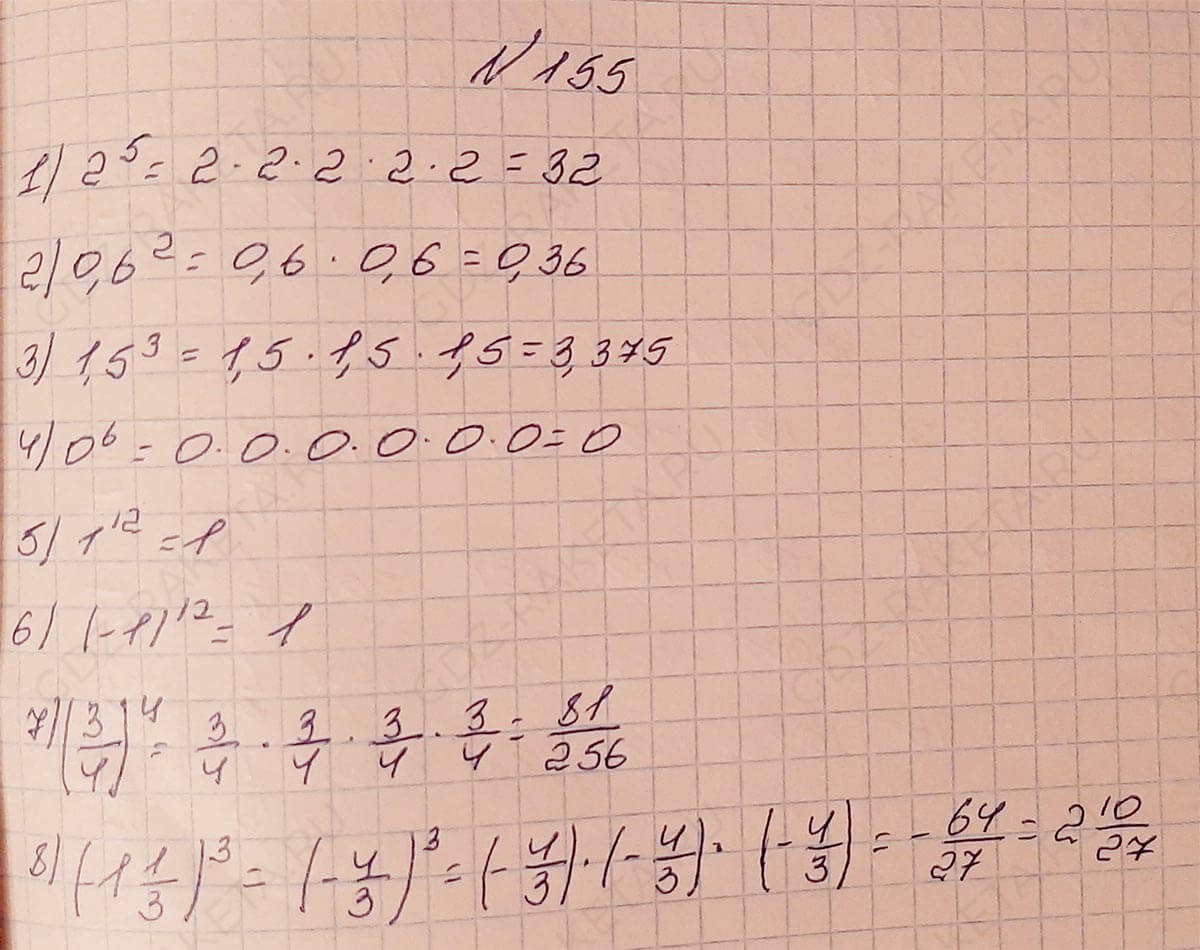 №155
1) 2⁵ = 2 · 2 · 2 · 2 · 2 = 32
2) 0,6² = 0,6 · 0,6 = 0,36
3) 1,5³ = 1,5 · 1,5 · 1,5 = 3,375
4) 0⁶ = 0 · 0 · 0 · 0 · 0 · 0 = 0
5) 1¹² = 1
6) (-1)¹² = 1
7) (3/4)⁴ = 3/4 · 3/4 · 3/4 · 3/4 = 81/256
8) (-1 1/3)³ = (-4/3)³ = (-4/3) · (-4/3) · (-4/3) = -64/27 = 2 10/27
GDZ-RAKETA.RU